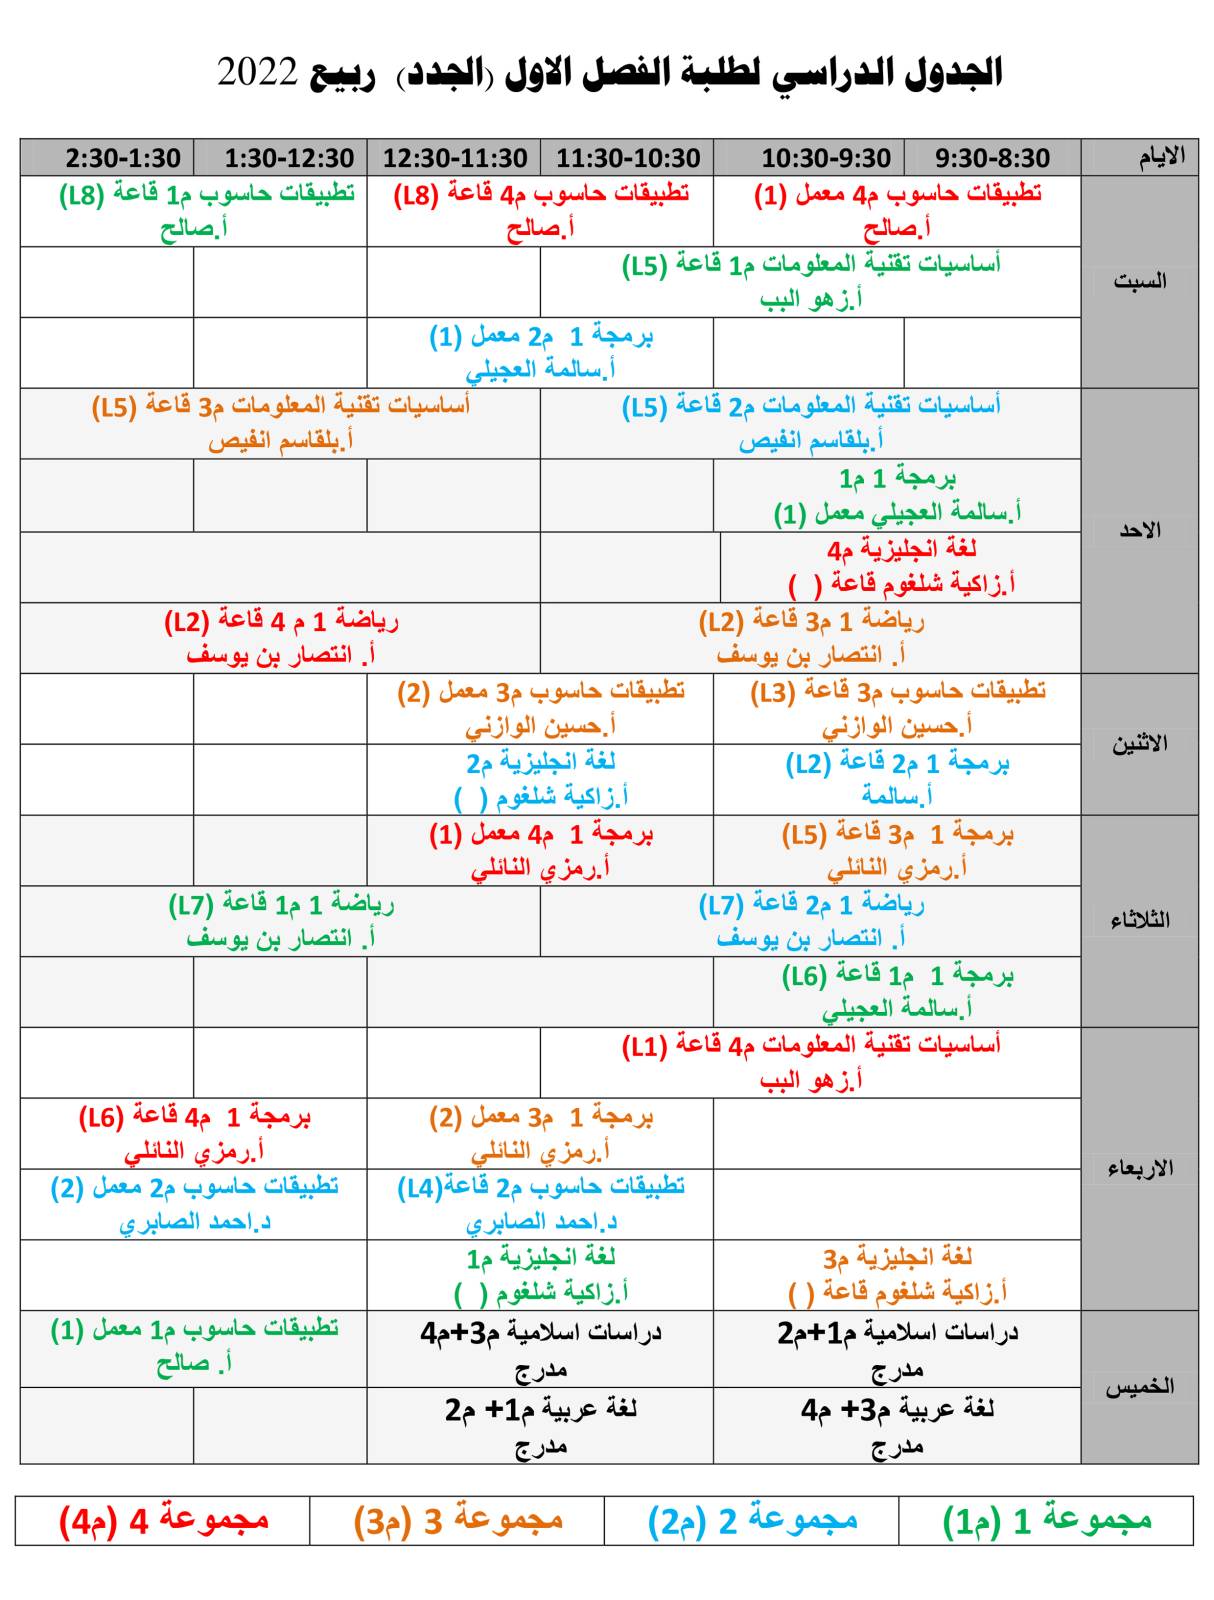 الجدول الدراسي لطلبة الفصل الاول (الجدد) ربيع 2022
الايام 9:30-8:30 10:30-9:30 11:30-10:30 12:30-11:30 1:30-12:30 2:30-1:30
السبت
تطبيقات حاسوب م4 معمل (1)
أ.صالح
تطبيقات حاسوب م4 قاعة (L8)
أ.صالح
تطبيقات حاسوب م1 قاعة (L8)
أ.صالح
أساسيات تقنية المعلومات م1 قاعة (L5)
أ.زهو البب
برمجة 1 م2 معمل (1)
أ.سالمة العجيلي
الاحد
أساسيات تقنية المعلومات م2 قاعة (L5)
أ.بلقاسم انفيص
أساسيات تقنية المعلومات م3 قاعة (L5)
أ.بلقاسم انفيص
برمجة 1 م1
أ.سالمة العجيلي معمل (1)
لغة انجليزية م4
أ.زاكية شلغوم قاعة ( )
رياضة 1 م3 قاعة (L2)
أ. انتصار بن يوسف
رياضة 1 م 4 قاعة (L2)
أ. انتصار بن يوسف
الاثنين
تطبيقات حاسوب م3 قاعة (L3)
أ.حسين الوازني
تطبيقات حاسوب م3 معمل (2)
أ.حسين الوازني
برمجة 1 م2 قاعة (L2)
أ.سالمة
لغة انجليزية م2
أ.زاكية شلغوم ( )
الثلاثاء
برمجة 1 م3 قاعة (L5)
أ.رمزي النائلي
برمجة 1 م4 معمل (1)
أ.رمزي النائلي
رياضة 1 م2 قاعة (L7)
أ. انتصار بن يوسف
رياضة 1 م1 قاعة (L7)
أ. انتصار بن يوسف
برمجة 1 م1 قاعة (L6)
أ.سالمة العجيلي
الاربعاء
أساسيات تقنية المعلومات م4 قاعة (L1)
أ.زهو البب
برمجة 1 م3 معمل (2)
أ.رمزي النائلي
برمجة 1 م4 قاعة (L6)
أ.رمزي النائلي
تطبيقات حاسوب م2 قاعة(L4)
د.احمد الصابري
تطبيقات حاسوب م2 معمل (2)
د.احمد الصابري
لغة انجليزية م3
أ.زاكية شلغوم قاعة ( )
لغة انجليزية م1
أ.زاكية شلغوم ( )
الخميس
دراسات اسلامية م1+م2
مدرج
دراسات اسلامية م3+م4
مدرج
تطبيقات حاسوب م1 معمل (1)
أ. صالح
لغة عربية م3+ م4
مدرج
لغة عربية م1+ م2
مدرج
مجموعة 1 (م1) مجموعة 2 (م2) مجموعة 3 (م3) مجموعة 4 (م4)